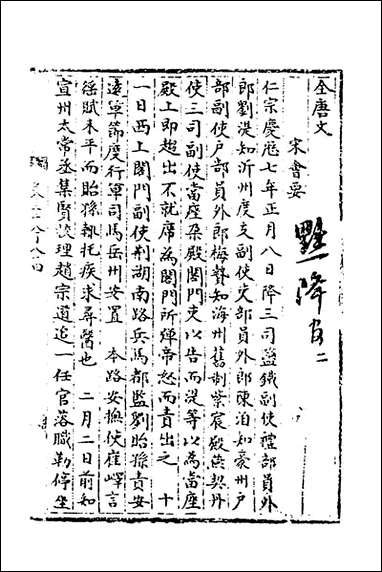 全唐文
宋會要
黜降官二
仁宗慶厯七年正月八日降三司鹽鐵副使禮部員外
郎劉湜知沂州度支副使吏部員外郎陳洎知豪州户
部副使户部員外郎梅贄知海州舊制紫宸殿燕契丹
使三司副使當座朶殿閤門吏以告而湜等以為當座
殿上即趨出不就席為閤門所彈帝怒而責出之 十
一日西上閤門副使荆湖南路兵馬都監劉貽孫責安
逺軍節度行軍司馬岳州安置 本路安撫使崔嶧言
徭賊未平而貽孫輒托疾求尋醫也 二月二日前知
宣州太常丞集賢挍理趙宗道追一任官落職勒停坐